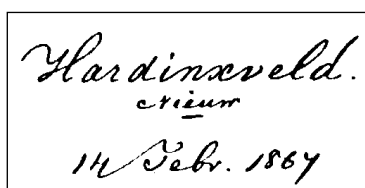 Hardinxveld.
Nieuw
14 Febr. 1867